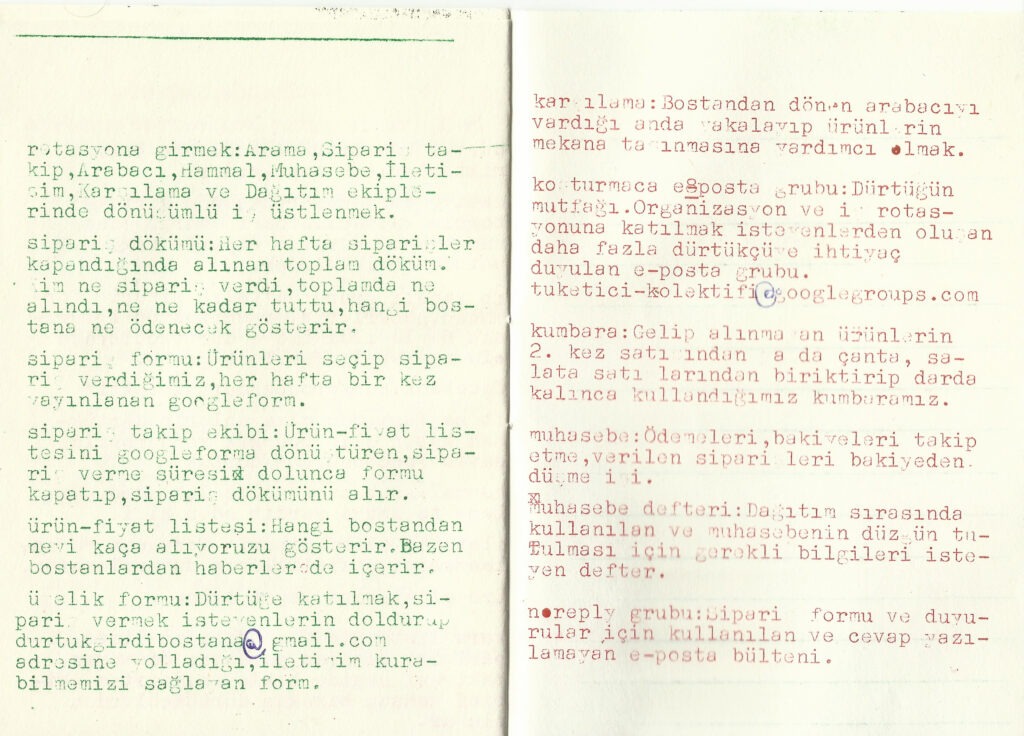 rotasyona girmek:Arama,Sipariş ta-
kip,Arabacı,Hammal,Muhasebe,İleti-
şim,Karşılama ve Dağıtım ekiple-
rinde dönüşümlü iş üstlenmek.
sipariş dökümü:Her hafta siparişler
kapandığında alınan toplam döküm.
Kim ne sipariş verdi,toplamda ne
alındı,ne ne kadar tuttu,hangi bos-
tana ne ödenecek gösterir.
sipariş formu:Ürünleri seçip sipa-
riş verdiğimiz,her hafta bir kez
yayınlanan googleform.
sipariş takip ekibi:Ürün-fiyat lis-
tesini googleforma dönüştüren,sipa-
riş verme süresi dolunca formu
kapatıp,sipariş dökümünü alır.
ürün-fiyat listesi:Hangi bostandan
neyi kaça alıyoruzu gösterir.Bazen
bostanlardan haberler de içerir.
üyelik formu:Dürtüğe katılmak,si-
pariş vermek isteyenlerin doldurup
durtukgirdibostana@gmail.com
adresine yolladığı,iletişim kura-
bilmemizi sağlayan form.
karşılama:Bostandan dönen arabacıyı
vardığı anda yakalayıp ürünlerin
mekana taşınmasına yardımcı olmak.
koşturmaca e-posta grubu:Dürtüğün
mutfağı.Organizasyon ve iş rotas-
yonuna katılmak isteyenlerden oluşan
daha fazla dürtükçüye ihtiyaç
duyulan e-posta grubu.
tuketici-kolektifi@googlegroups.com
kumbara:Gelip alınmayan ürünlerin
2. kez satışından ya da çanta, sa-
lata satışlarından biriktirip darda
kalınca kullandığımız kumbaramız.
muhasebe:Ödemeleri,bakiyeleri takip
etme,verilen siparişleri bakiyeden
düşme işi.
Muhasebe defteri:Dağıtım sırasında
kullanılan ve muhasebenin düzgün tu-
tulması için gerekli bilgileri iste-
yen defter.
noreply grubu:Sipariş formu ve duyu-
rular için kullanılan ve cevap yazı-
lamayan e-posta bülteni.